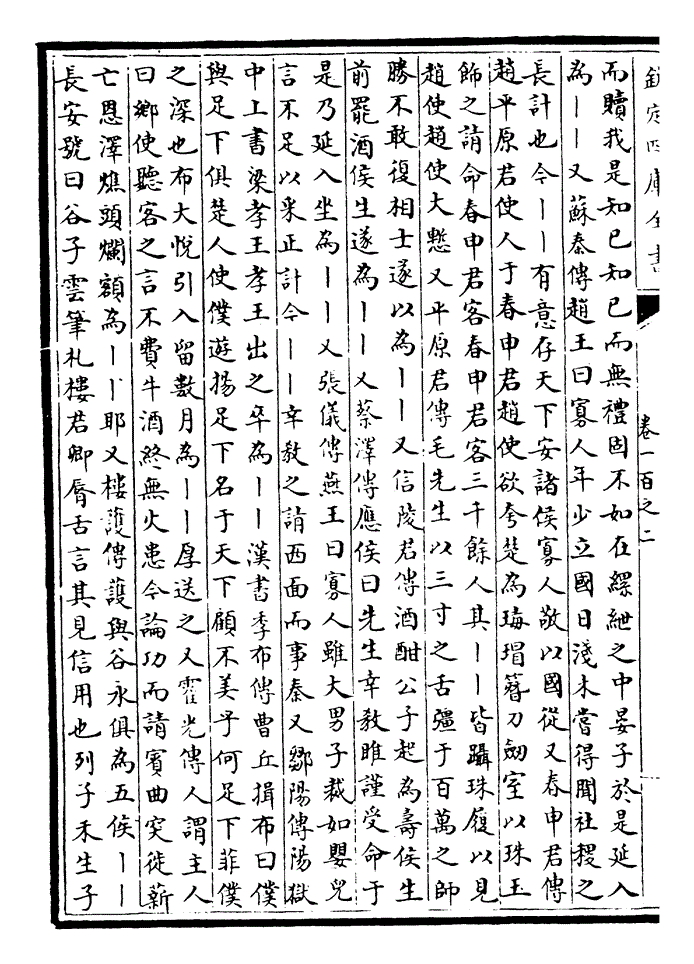 欽定四庫全書
卷一百之二
而贖我是知已知已而無禮固不如在縲紲之中晏子於是延入
為丨丨又蘇秦傳趙王曰寡人年少立國日淺未嘗得聞社稷之
長計也今丨丨有意存天下安諸侯寡人敬以國從又春申君傳
趙平原君使人于春申君趙使欲夸楚為瑇瑁簪刀劒室以珠玉
飾之請命春申君客春申君客三千餘人其丨丨皆躡珠履以見
趙使趙使大慙又平原君傳毛先生以三寸之舌彊于百萬之師
勝不敢復相士遂以為丨丨又信陵君傳酒酣公子起為壽侯生
前罷酒侯生遂為丨丨又蔡澤傳應侯曰先生幸教睢謹受命于
是乃延入坐為丨丨又張儀傳燕王曰寡人雖大男子裁如嬰兒
言不足以采正計今丨丨幸教之請西面而事秦又鄒陽傳陽獄
中上書梁孝王孝王出之卒為丨丨漢書季布傳曹丘揖布曰僕
與足下俱楚人使僕遊揚足下名于天下顧不美乎何足下菲僕
之深也布大悅引入留數月為丨丨厚送之又霍光傳人謂主人
曰鄉使聽客之言不費牛酒終無火患今論功而請賓曲突徙薪
亡恩澤燋頭爛額為丨丨耶又樓護傳護與谷永俱為五侯丨丨
長安號曰谷子雲筆札樓君卿脣舌言其見信用也列子禾生子